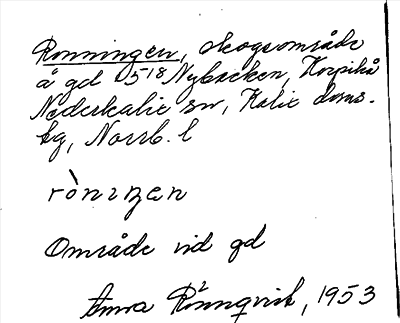 Ronningen, skogsområde
å gd 5¹⁸ Nybacken, Korpikå
Nederkalix sn, Kalix doms.
bg, Norrb. l
ròniŋen
Område vid gd
Anna Rönnqvist, 1953